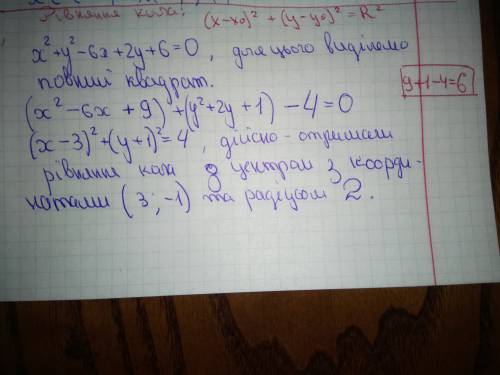 Рівняння кола: (x-x₀)² + (y-y₀)² = R²
x²+y²-6x+2y+6=0, для цього виділимо
повний квадрат.
9+1-4=6
(x²-6x+9)+(y²+2y+1)-4=0
(x-3)²+(y+1)²=4, дійсно отримали
рівняння кола з центром з коорди-
натами (3;-1) та радіусом 2.